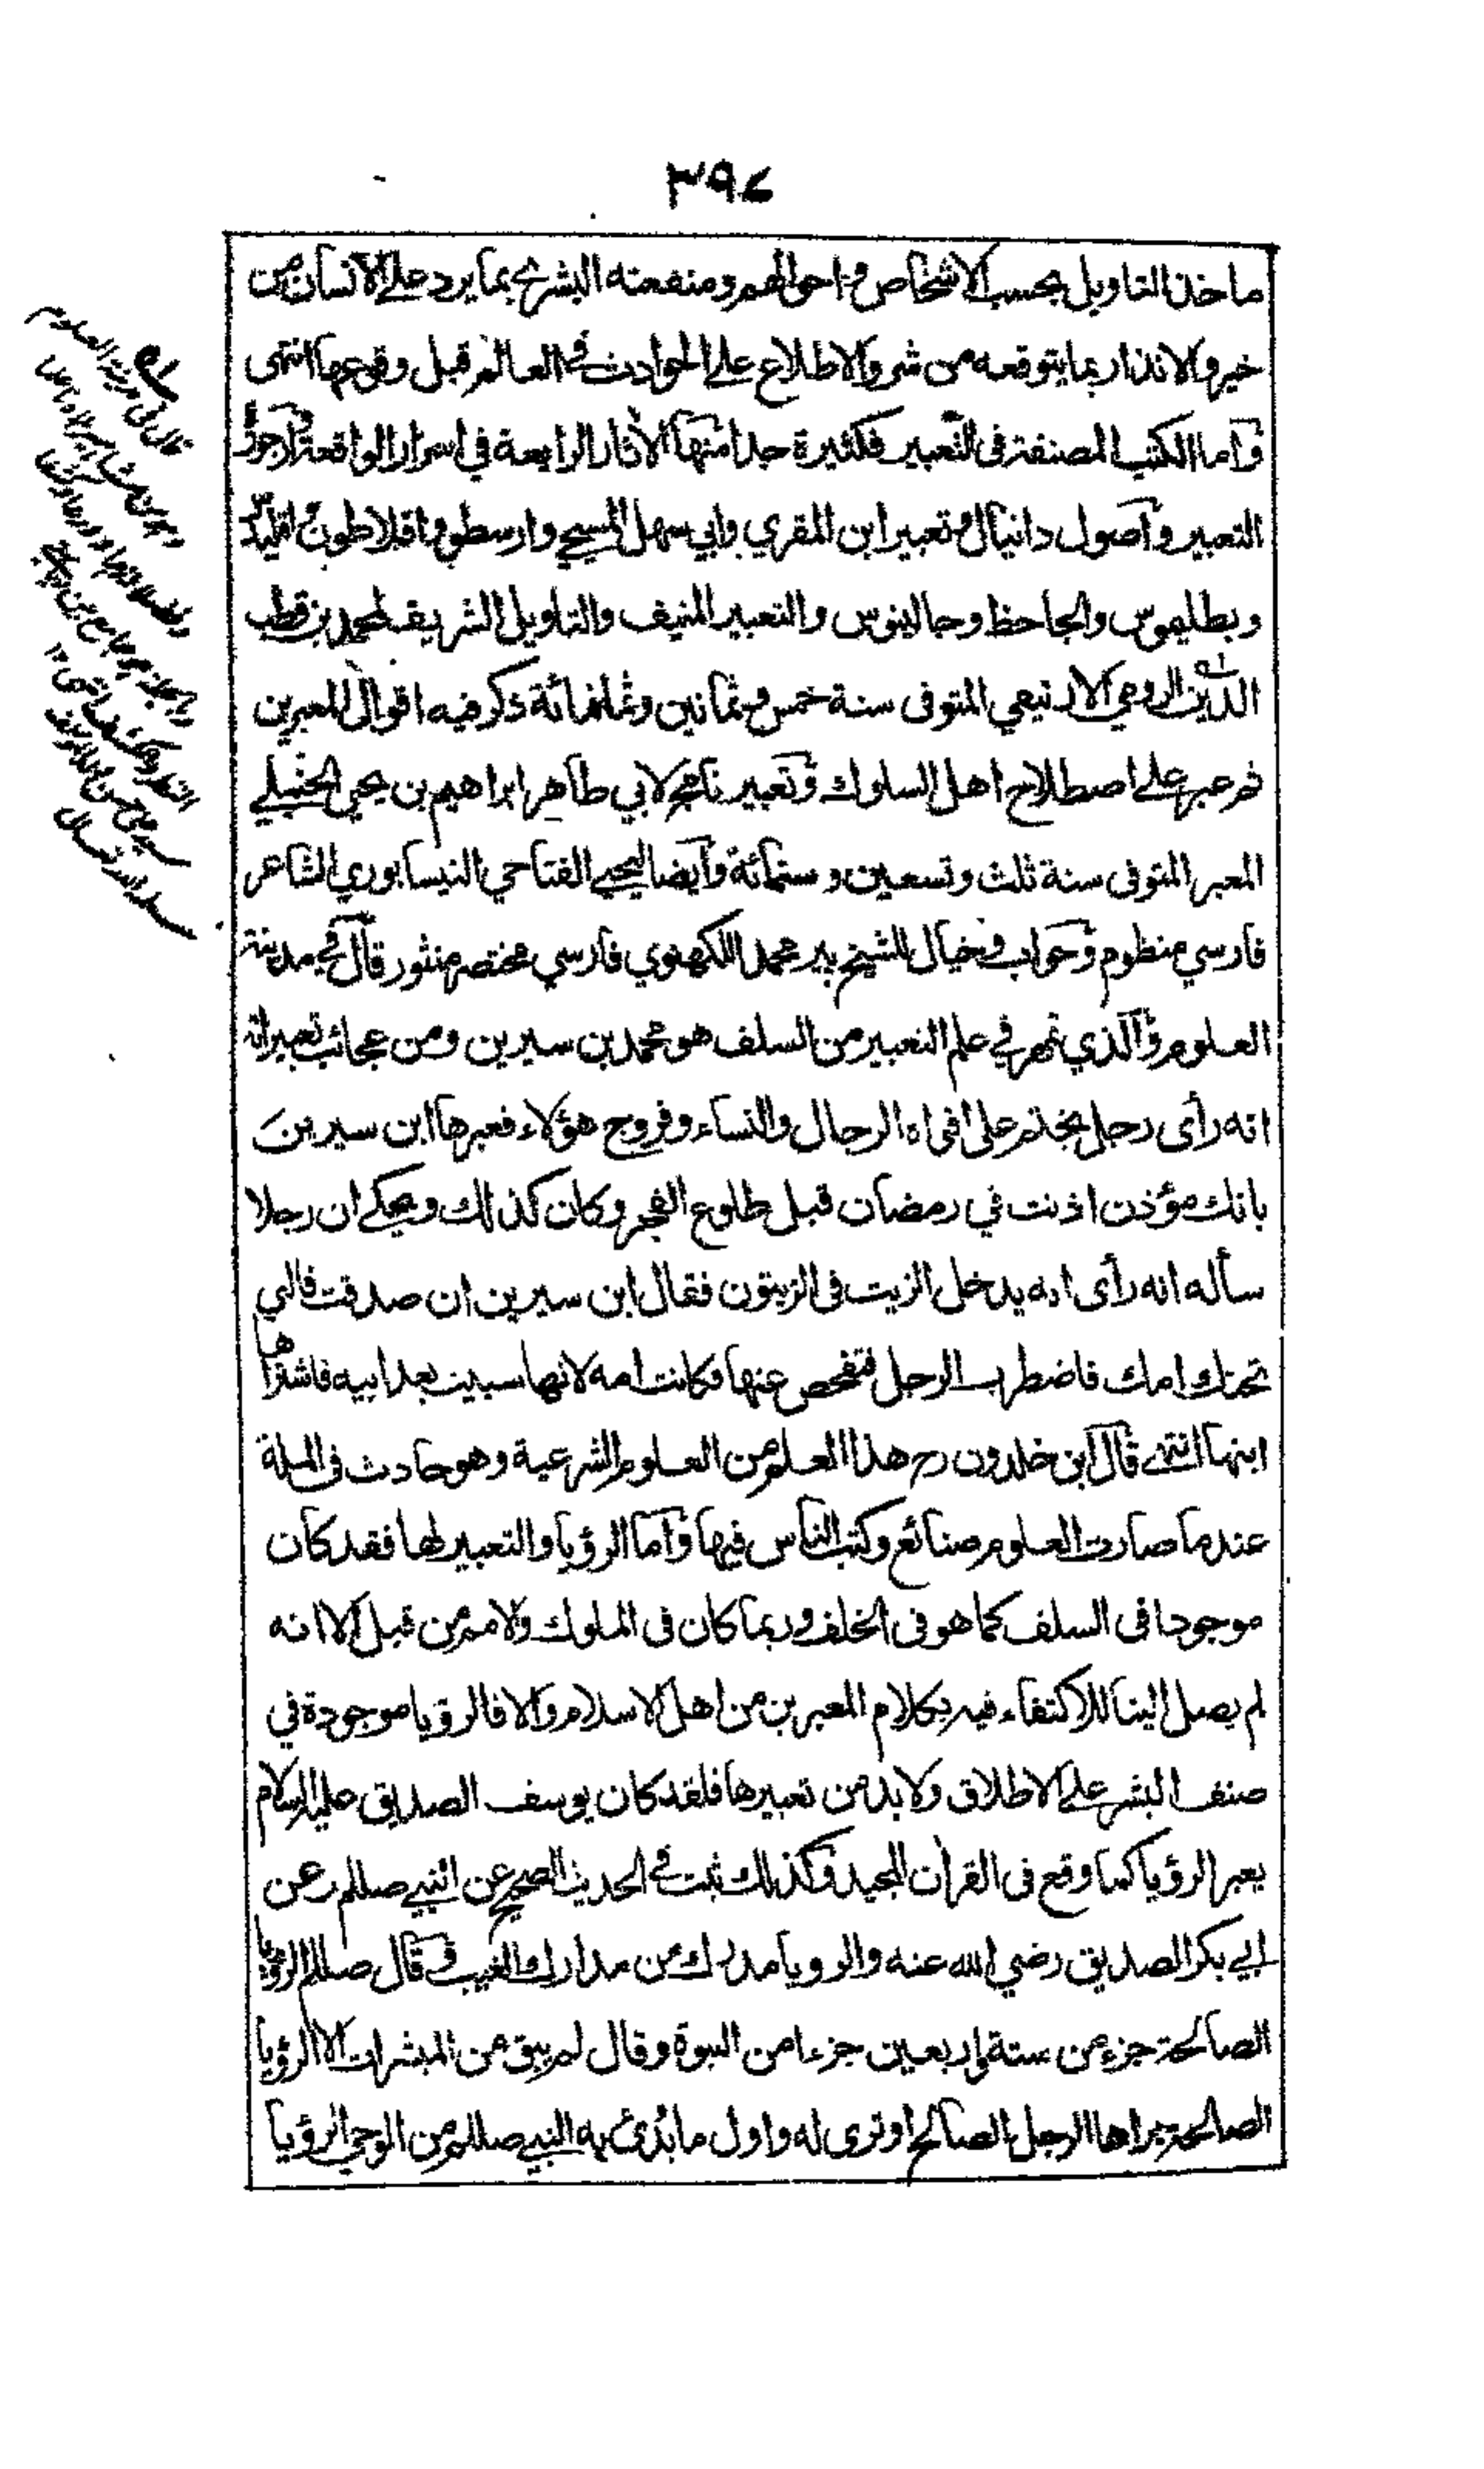 ٣٩٤
ماخذ التاويل بحسب الاشخاص و احوالهم ومنفعته البشرى بما يرد على الانسان من
خير والانذار بما يتوقعه من شر والاطلاع على الحوادث في العالم قبل وقوعها انتهى
واما الكتب المصنفة فى التعبير فكثيرة جدا منها الاثار الرابعة في اسرار الواقعة وارجوزة
التعبير واصول دانيال وتعبير ابن المقري وابي سهل المسيحي وارسطو وافلاطون واقليدس
وبطليموس والجاحظ وجالينوس والتعبير المنيف والتاويل الشريف لمحمد بن قطب
الدين الرومي الازنيقي المتوفى سنة خمس وثمانين وثمانمائة ذكر فيه اقوال المعبرين
ثم عبر على اصطلاح اهل السلوك وتعبير نامج لابي طاهر ابراهيم بن يحيى الحنبلي
المعبر المتوفى سنة ثلث وتسعين وستمائة وايضا ليحيى الفتاحي النيسابوري الشاعر
فارسي منظوم وخواب وخيال للشيخ پير محمد اللكهنوي فارسي مختصر منثور قال في مدينة
العلوم والذي تمهر في علم التعبير من السلف هو محمد بن سيرين ومن عجائب تعبيراته
انه رأى رجل يختم على افواه الرجال والنساء وفروج هؤلاء فعبرها ابن سيرين
بانك مؤذن اذنت في رمضان قبل طلوع الفجر وكان كذلك ويحكى ان رجلا
سأله انه رأى انه يدخل الزيت فى الزيتون فقال ابن سيرين ان صدقت فالتي
تحتك امك فاضطرب الرجل فتفحص عنها فكانت امه لانها سبيت بعد ابيه فاشتراها
ابنها انتهى قال ابن خلدون رح هذا العلم من العلوم الشرعية وهو حادث فى الملة
عند ما صارت العلوم صنائع وكتب الناس فيها واما الرؤيا والتعبير لها فقد كان
موجودا فى السلف كما هو فى الخلف وربما كان فى الملوك والامم من قبل الا انه
لم يصل الينا للاكتفاء فيه بكلام المعبرين من اهل الاسلام والا فالرؤيا موجودة في
صنف البشر على الاطلاق ولا بد من تعبيرها فلقد كان يوسف الصديق عليه السلام
يعبر الرؤيا كما وقع فى القرآن المجيد وكذلك ثبت في الحديث الصحيح عن النبي صللم وعن
ابي بكر الصديق رضي الله عنه والرويا مدرك من مدارك الغيب وقال صللم الرؤيا
الصالحة جزء من ستة واربعين جزءا من النبوة وقال لم يبق من المبشرات الا الرؤيا
الصالحة يراها الرجل الصالح او ترى له واول ما بدئ به النبي صللم من الوحي الرؤيا